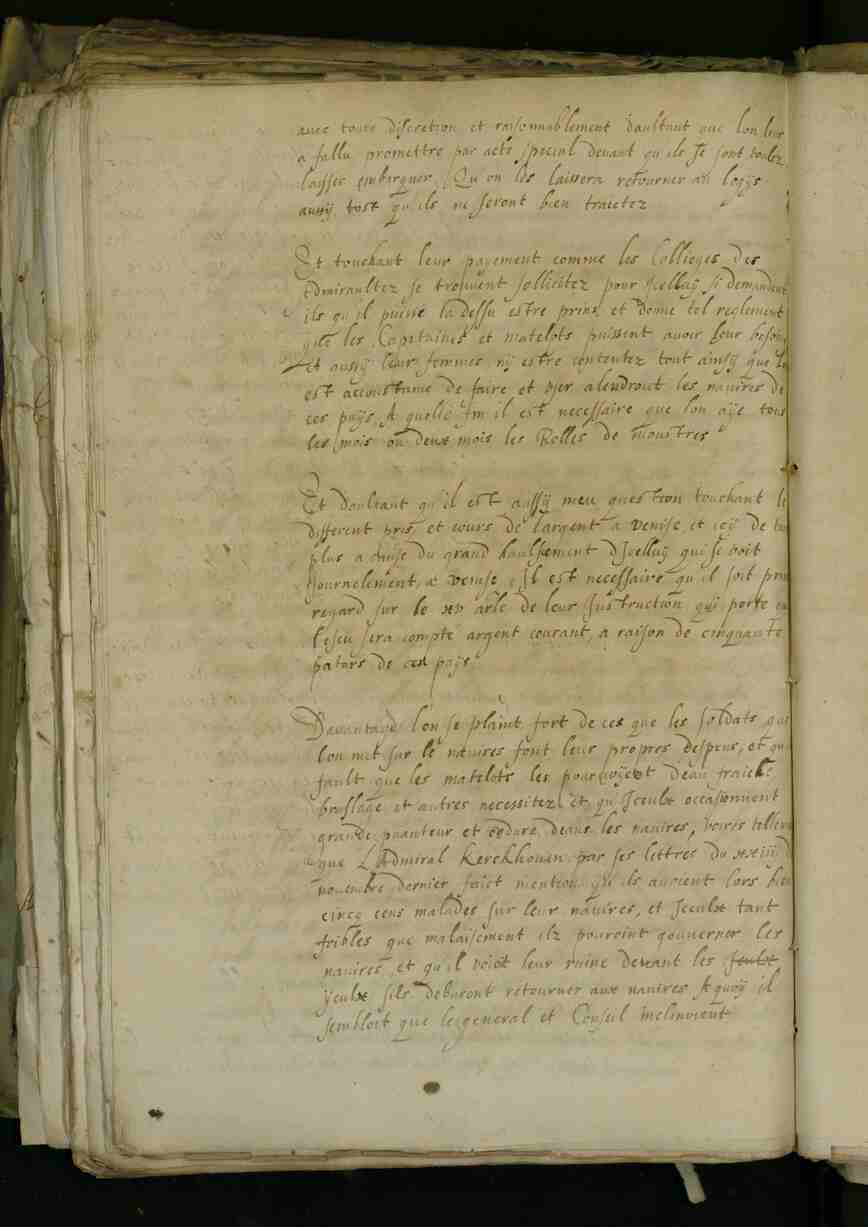 avec toute discretion et raisonnablement daultant que lon leur
a fallu promettre par acte special devant qu ils se sont voulez
laisser embarquer, Qu on les laissera retourner au logys
aussij tost qu ils ne seront bien traictez
Et touchant leur payement comme les Collieges des
Admiraultez se trouvent sollicitez pour Icelluij si demandent
ils qu il puisse la dessu estre prins et donne tel reglement
que les Capitaines et matelots puissent avoir leur besoing
et aussij leur femmes nij estre contentez tout ainsij que
est accoustume de faire et user alendroit les navires de
ces pays, A quelle fin il est necessaire que lon aije tous
les mois ou deux mois les Rolles de monstres
Et daultant qu il est aussij meu question touchant le
different pris et cours de largent a Venise et icij de tant
plus a cause du grand haulsement d Icelluij qui se voit
journelement a Venise, Il est necessaire qu il soit prins
regard sur le xv arle de leur Instruction qui porte
lescu sera compte argent courant, a raison de cinquante
patars de ces pays
Davantage lon se plaint fort de ces que les soldats que
lon met sur le navires font leur propres despens, et qu
fault que les matelots les pourvoyent deau fraiche
bruslage et autres necessitez et qu Iceulx occasionnent
grande puanteur et ordure deans les navires, voires
que L Admiral Kerckhoven par ses lettres du xxiij d
novembre dernier faict mention qu ils avoient lors bien
cincq cens malades sur leur navires, et Iceulx tant
foibles que malaisement ilz pouroint gouverner les
navires et qu il voiot leur ruine devant les Iceulx
yeulx sils deburont retourner aux navires A quoij il
sembloit que le general et Conseil inclinoient